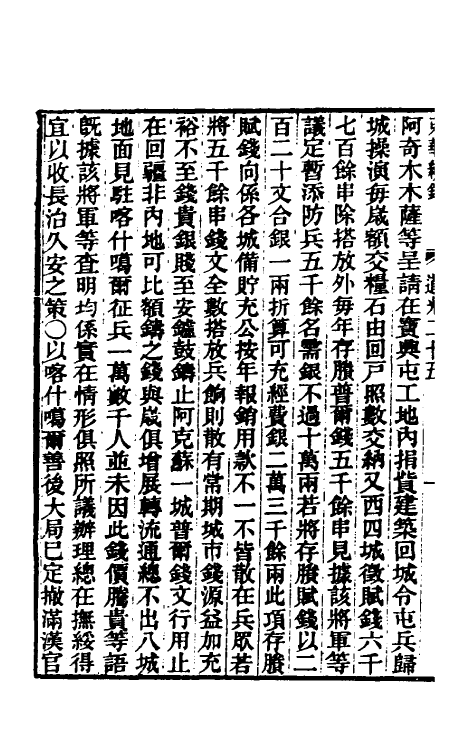 阿奇木木薩等呈請在寶興屯工地內捐貲建築回城令屯兵歸
城操演每歲額交糧石由回戸照數交納又西四城徵賦錢六千
七百餘串除搭放外每年存賸普爾錢五千餘串見據該將軍等
議定暫添防兵五千餘名需銀不過十萬兩若將存賸賦錢以二
百二十文合銀一兩折算可充經費銀二萬三千餘兩此項存賸
賦錢向係各城備貯充公按年報銷用款不一不皆散在兵眾若
將五千餘串錢文全數搭放兵餉則散有常期城市錢源益加充
裕不至錢貴銀賤至安鑪鼓鑄止阿克蘇一城普爾錢文行用止
在回疆非內地可比額鑄之錢與歲俱增展轉流通總不出八城
地面見駐喀什噶爾征兵一萬數千人並未因此錢價騰貴等語
旣據該將軍等查明均係實在情形俱照所議辦理總在撫綏得
宜以收長治久安之策○以喀什噶爾善後大局已定撤滿漢官